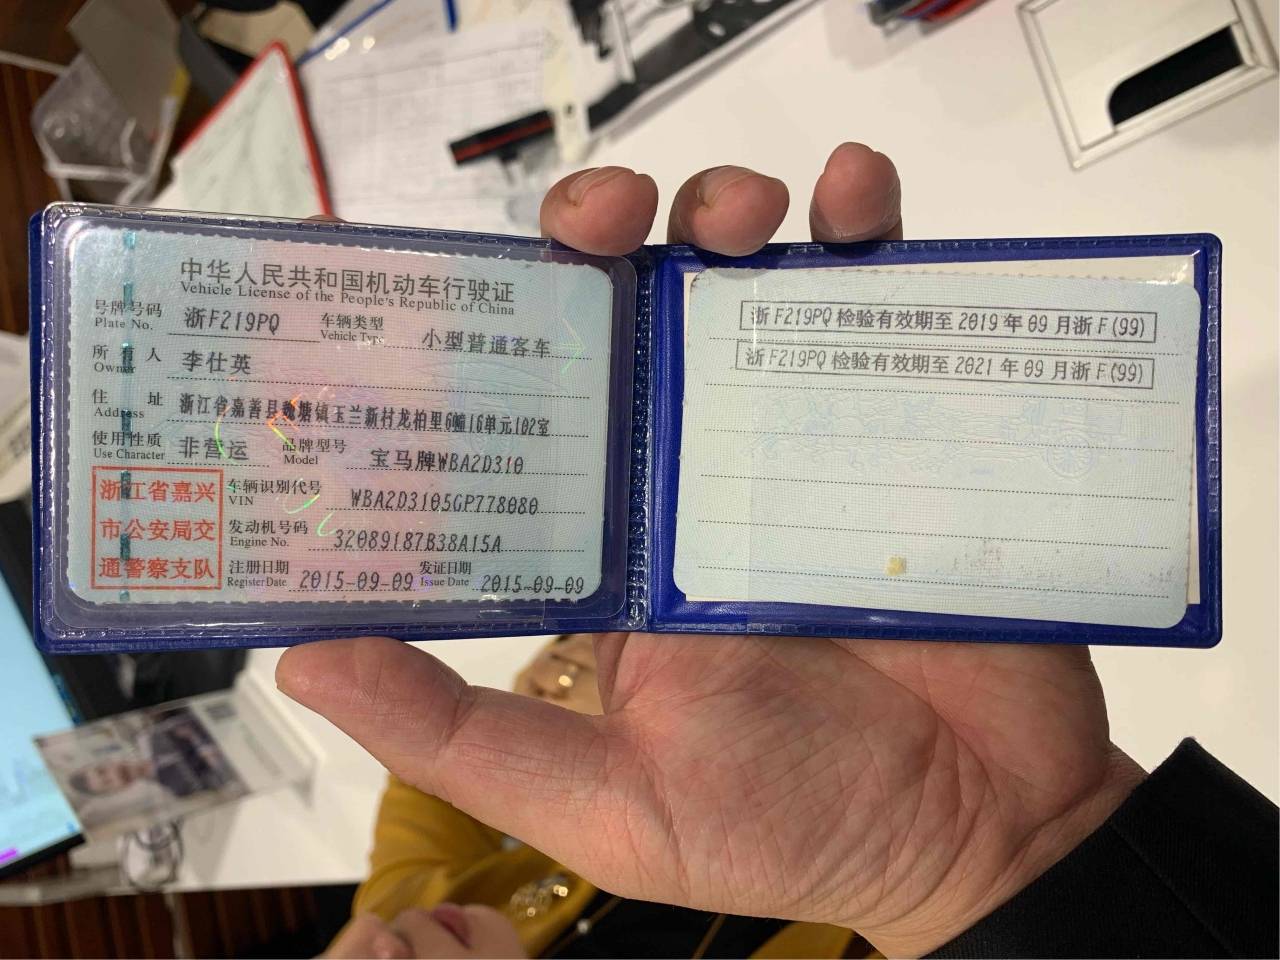 中华人民共和国机动车行驶证
Vehicle License of the People's Republic of China
号牌号码 浙F219PQ 车辆类型 小型普通客车
Plate No. Vehicle Type
所有人 李仕英
Owner
住址 浙江省嘉善县魏塘镇玉兰新村龙柏里6幢16单元102室
Address
使用性质 非营运 品牌型号 宝马牌WBA2D310
Use Character Model
浙江省嘉兴
市公安局交
通警察支队
车辆识别代号 WBA2D3105GP778080
VIN
发动机号码 32089187B38A15A
Engine No.
注册日期 2015-09-09 发证日期 2015-09-09
Register Date Issue Date
浙F219PQ检验有效期至2019年09月浙F(99)
浙F219PQ检验有效期至2021年09月浙F(99)